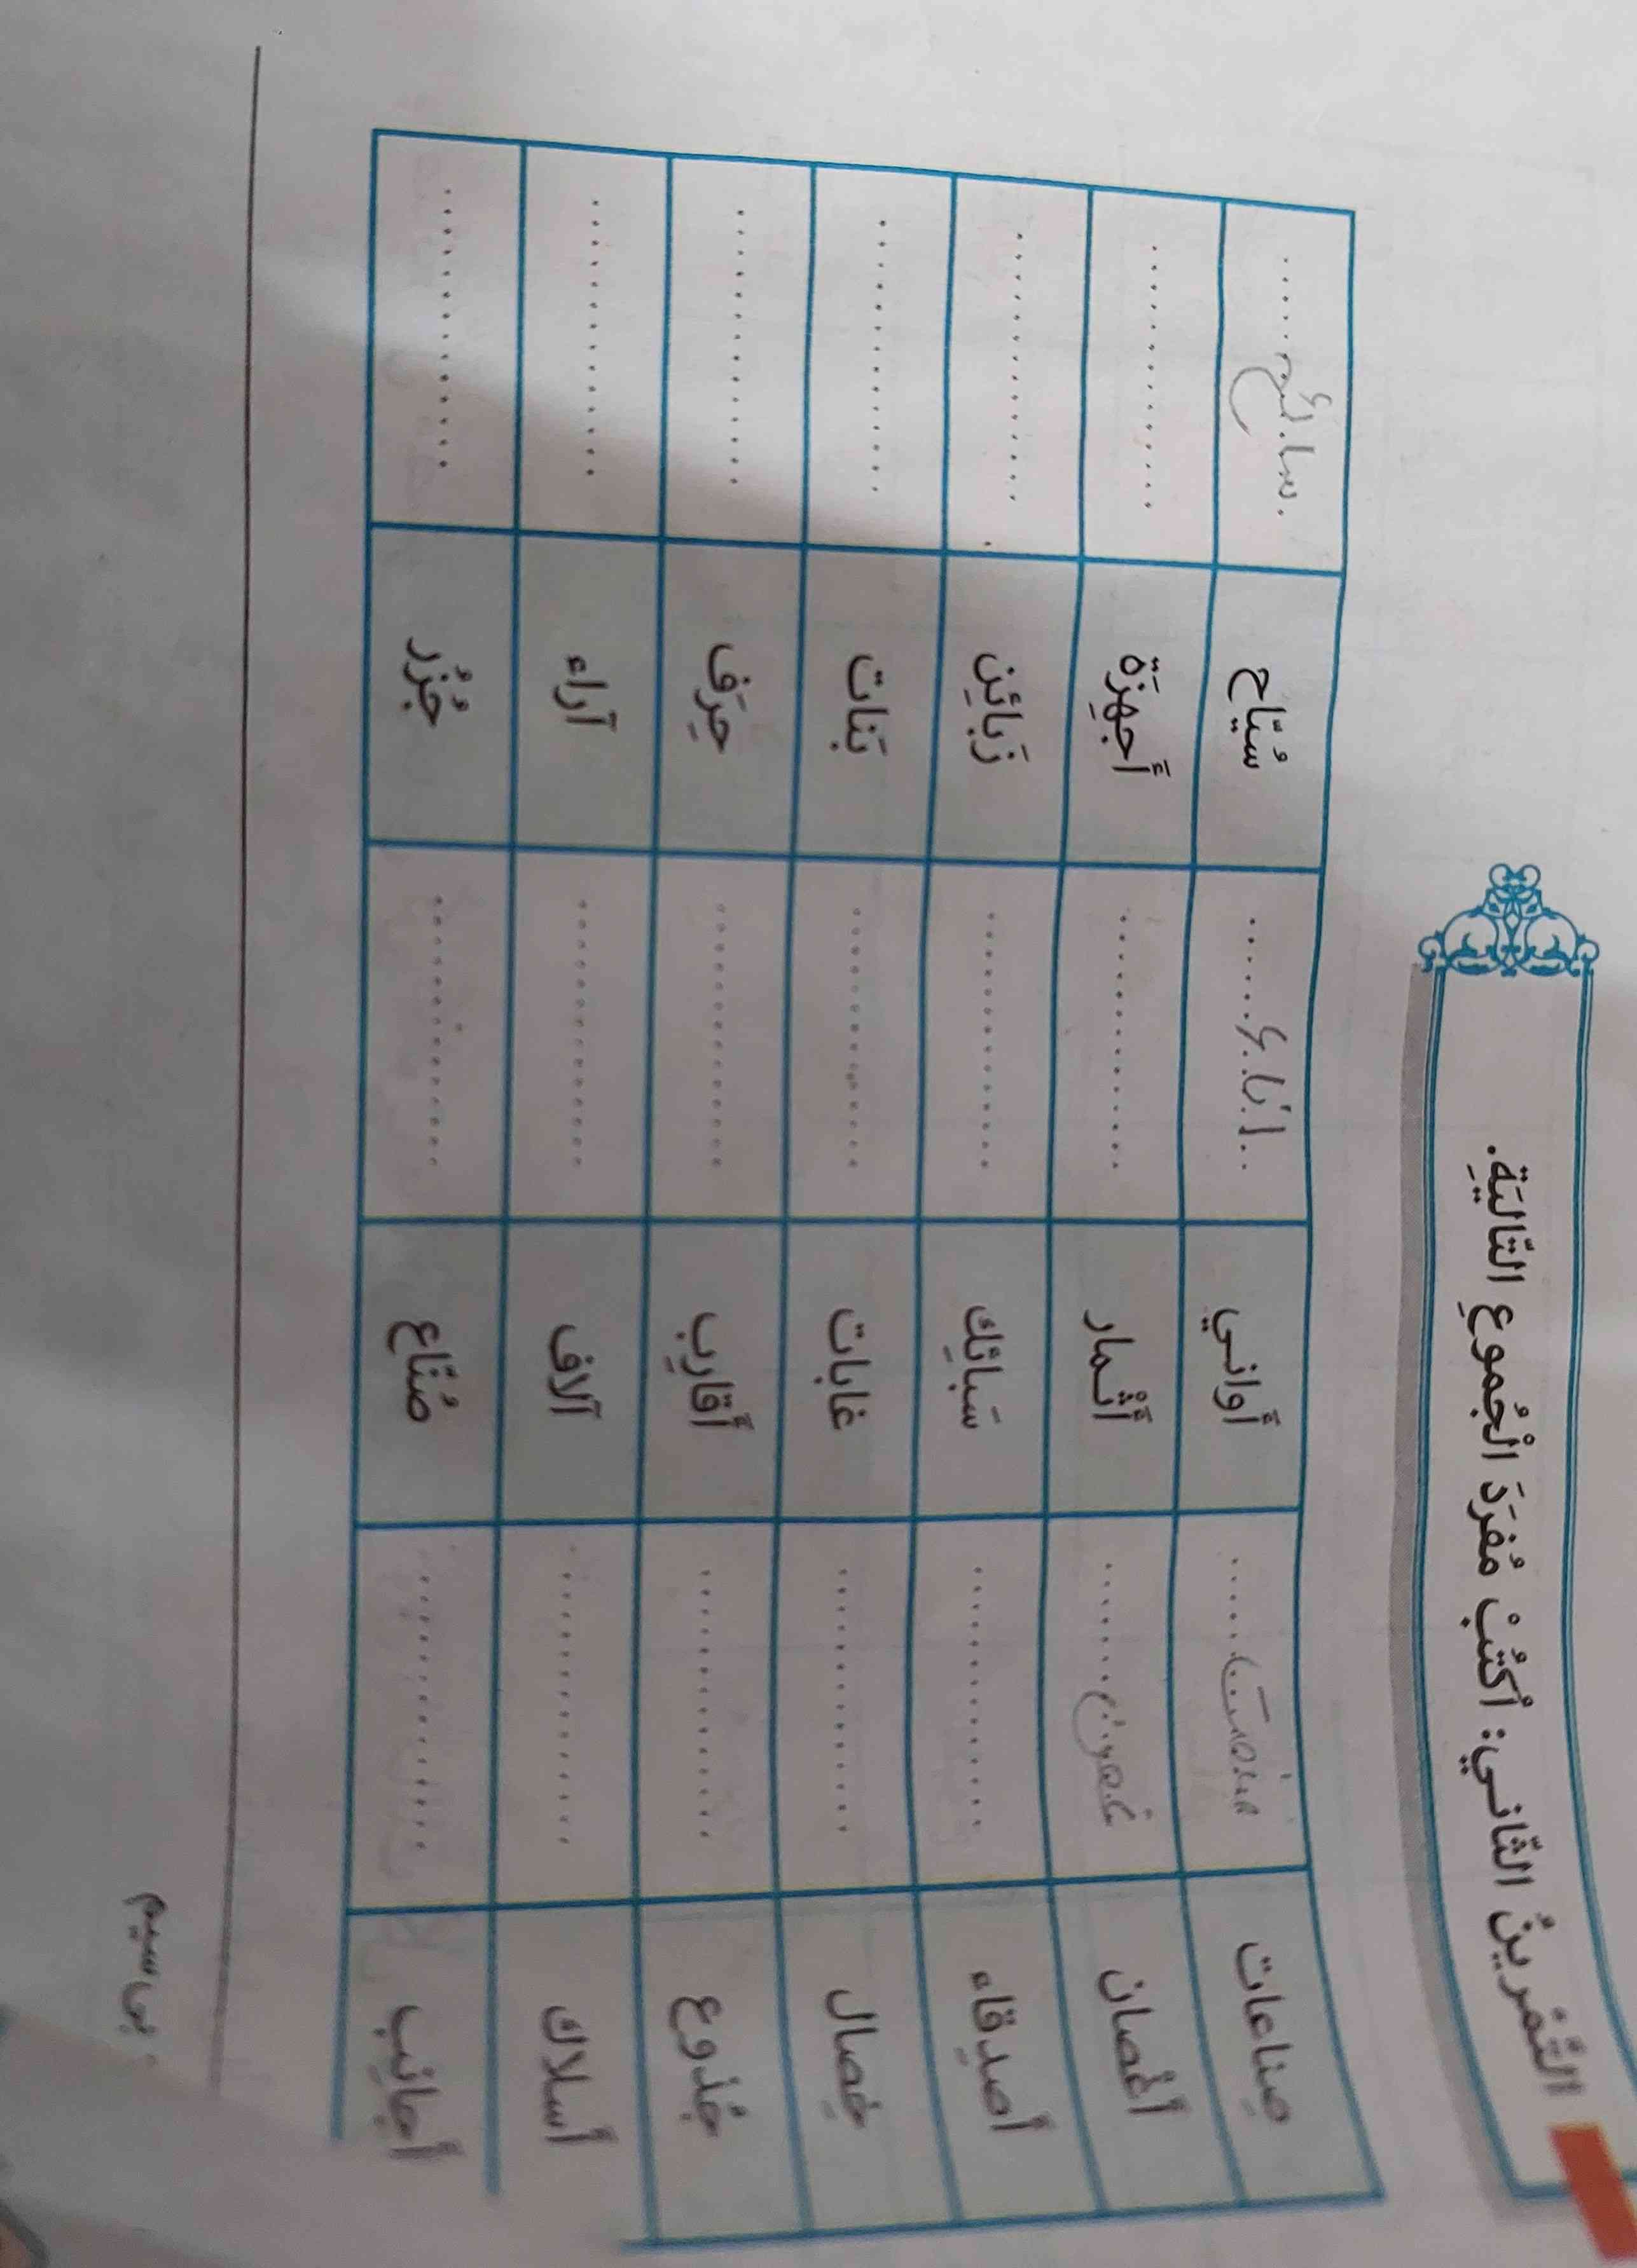 التَّمْرينُ الثّاني: اُكْتُبْ مُفرَدَ الْجُموعِ التّاليَةِ.
صِناعات صنعت أَواني اناء سُيّاح سائح
أَغْصان أَثْمار أَجهِزَة
أَصدِقاء سَبائِك زَبائِن
خِصال غابات بَنات
جُذوع أَقارِب حِرَف
أَسلاك آلاف آراء
أَجانِب صُنّاع جُزُر
بی سیم